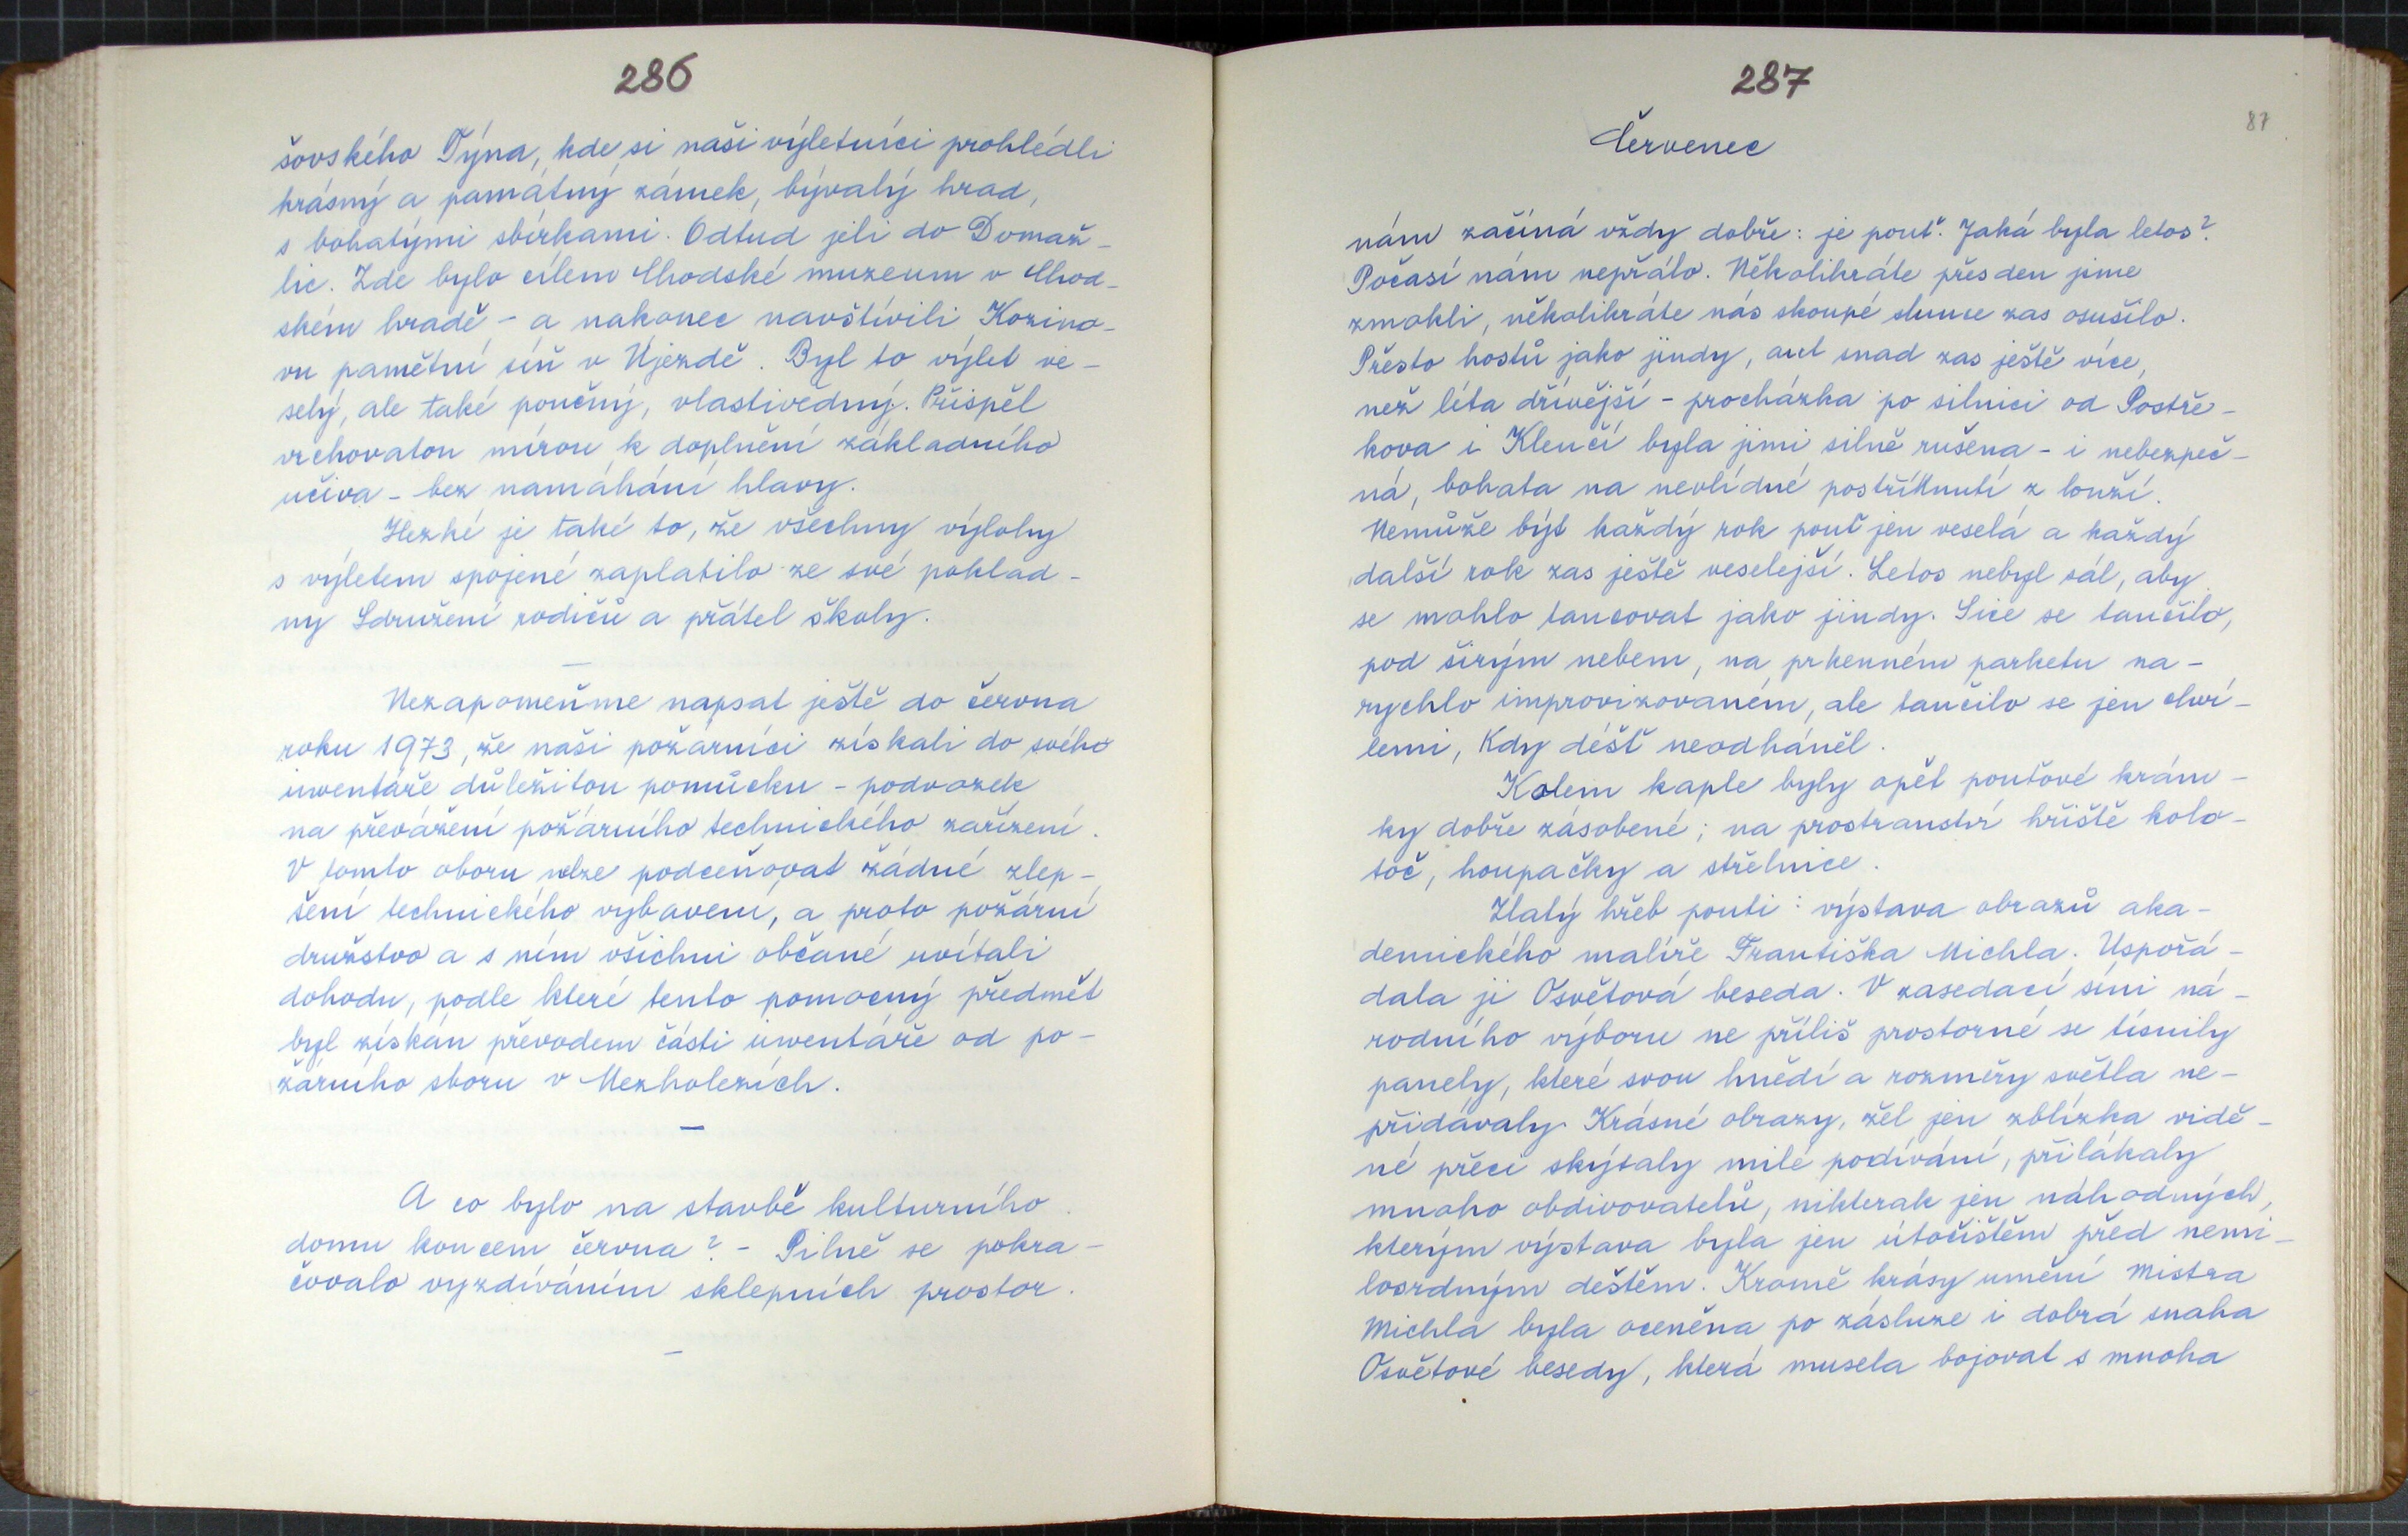 286
šovského Týna, kde si naši výletníci prohlédli
krásný a památný zámek, bývalý hrad,
s bohatými sbírkami. Odtud jeli do Domaž-
lic. Zde bylo cílem Chodské muzeum v Chod-
ském hradě - a nakonec navštívili Kozino-
vu pamětní síň v Újezdě. Byl to výlet ve-
selý, ale také poučný, vlastivědný. Přispěl
vrchovatou mírou k doplnění základního
učiva - bez namáhání hlavy.
Hezké je také to, že všechny výlohy
s výletem spojené zaplatilo ze své poklad-
ny Sdružení rodičů a přátel školy.
—
Nezapomeňme napsat ještě do června
roku 1973, že naši požárníci získali do svého
inventáře důležitou pomůcku - podvozek
na převážení požárního technického zařízení.
V tomto oboru nelze podceňovat žádné zlep-
šení technického vybavení, a proto požární
družstvo a s ním všichni občané uvítali
dohodu, podle které tento pomocný předmět
byl získán převodem části inventáře od po-
žárního sboru v Mezholezích.
—
A co bylo na stavbě kulturního
domu koncem června? - Pilně se pokra-
čovalo vyzdíváním sklepních prostor.
—
287
87
Červenec
nám začíná vždy dobře: je pouť. Jaká byla letos?
Počasí nám nepřálo. Několikráte přes den jsme
zmokli, několikráte nás skoupé slunce zas osušilo.
Přesto hostů jako jindy, aut snad zas ještě více,
než léta dřívější - procházka po silnici od Postře-
kova i Klenčí byla jimi silně rušena - i nebezpeč-
ná, bohata na nevlídné postříknutí z louží.
Nemůže být každý rok pouť jen veselá a každý
další rok zas ještě veselejší. Letos nebyl sál, aby
se mohlo tancovat jako jindy. Sice se tančilo,
pod širým nebem, na prkenném parketu na-
rychlo improvizovaném, ale tančilo se jen chví-
lemi, kdy déšť neodháněl.
Kolem kaple byly opět pouťové krám-
ky dobře zásobené; na prostranství hřiště kolo-
toč, houpačky a střelnice.
Zlatý hřeb pouti: výstava obrazů aka-
demického malíře Františka Michla. Uspořá-
dala ji Osvětová beseda. V zasedací síni ná-
rodního výboru ne příliš prostorné se tísnily
panely, které svou hnědí a rozměry světla ne-
přidávaly. Krásné obrazy, žel jen zblízka vidě-
né přeci skýtaly milé podívání, přilákaly
mnoho obdivovatelů, nikterak jen náhodných,
kterým výstava byla jen útočištěm před nemi-
losrdným deštěm. Kromě krásy umění Mistra
Michla byla oceněna po zásluze i dobrá snaha
Osvětové besedy, která musela bojovat s mnoha